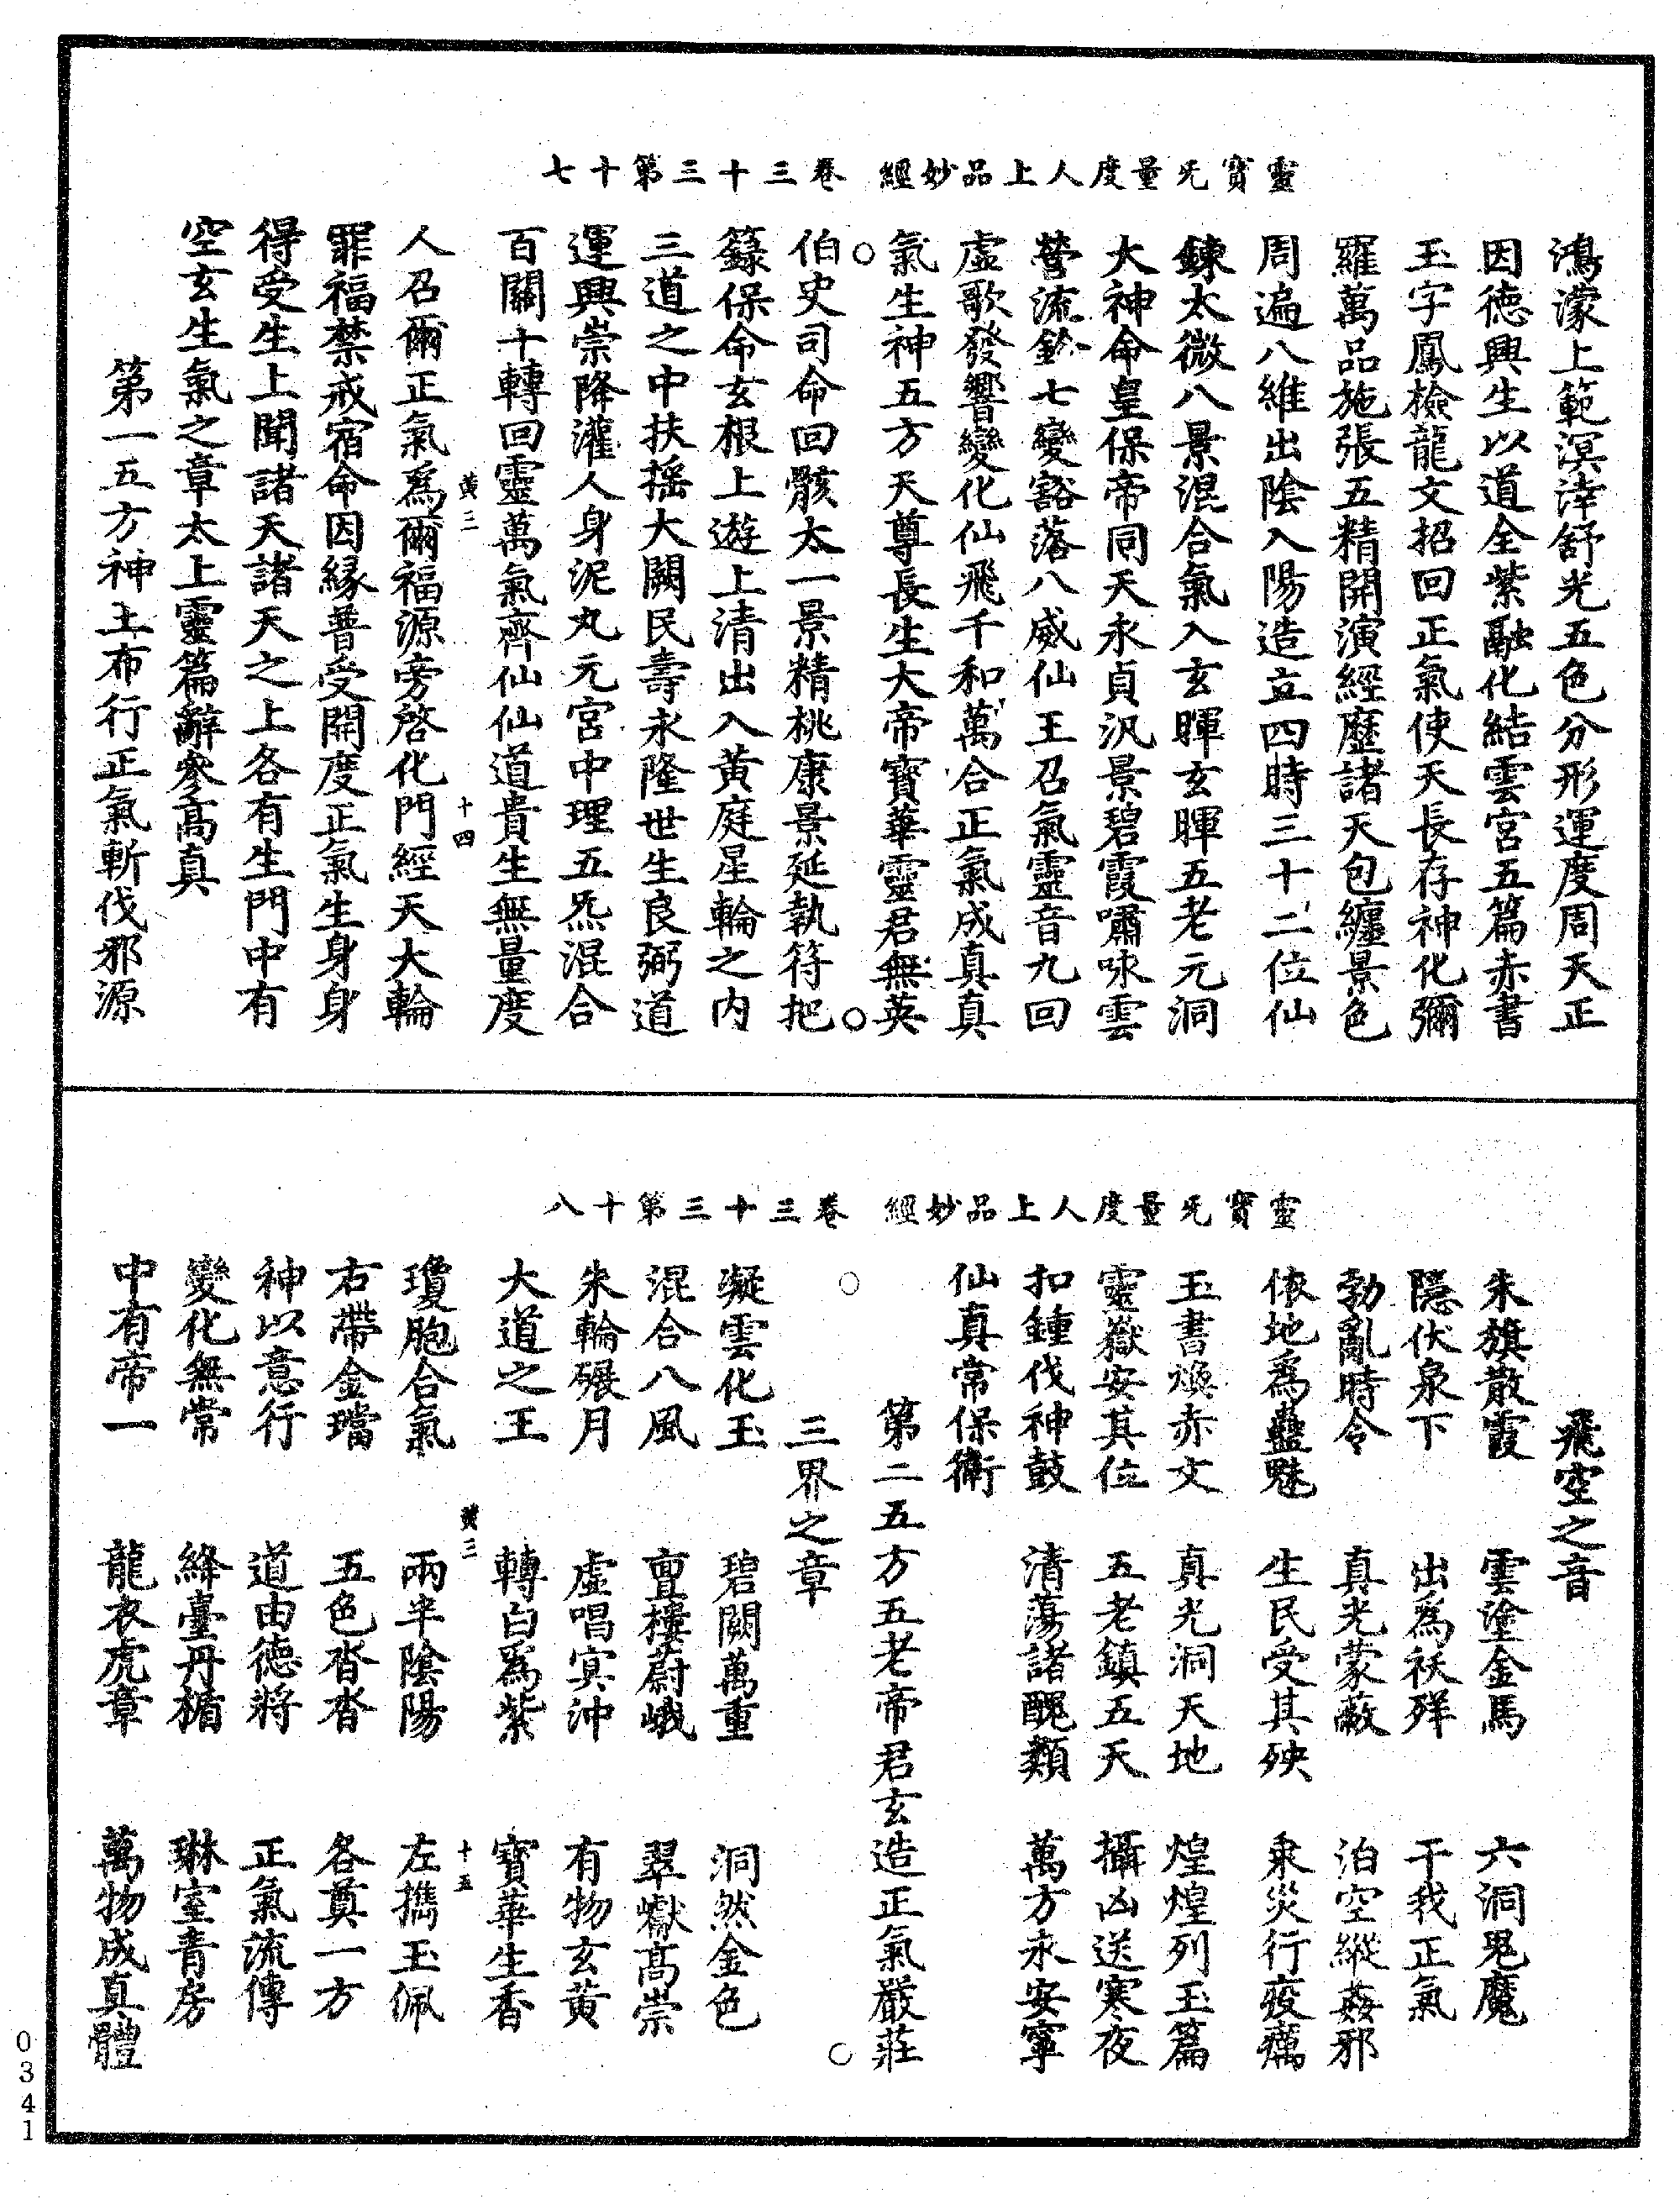 靈寶旡量度人上品妙經　卷三十三第十七
鴻濛上範溟涬舒光五色分形運度周天正
因德興生以道全紫融化結雲宮五篇赤書
玉字鳳檢龍文招回正氣使天長存神化彌
羅萬品施張五精開演經歷諸天包纏景色
周遍八維出陰入陽造立四時三十二位仙
鍊太微八景混合氣入玄暉玄暉五老元洞
大神命皇保帝同天永貞汎景碧霞嘯咏雲
營流鈴七變豁落八威仙王召氣靈音九回
虛歌發響變化仙飛千和萬合正氣成真真
氣生神五方天尊長生大帝寶華靈君無英
伯史司命回骸太一景精桃康景延執符把
籙保命玄根上遊上清出入黃庭星輪之內
三道之中扶搖大闕民壽永隆世生良弼道
運興崇降灌人身泥丸元宮中理五炁混合
百關十轉回靈萬氣齊仙仙道貴生無量度
黃三　十四
人召爾正氣爲爾福源旁啓化門經天大輪
罪福禁戒宿命因緣普受開度正氣生身身
得受生上聞諸天諸天之上各有生門中有
空玄生氣之章太上靈篇辭參高真
第一五方神土布行正氣斬伐邪源
靈寶旡量度人上品妙經　卷三十三第十八
飛空之音
朱旗散霞　雲塗金馬　六洞鬼魔
隱伏泉下　出爲祅殃　干我正氣
勃亂時令　真光蒙蔽　泊空縱姦邪
依地爲蠱魅　生民受其殃　乘災行疫癘
玉書煥赤文　真光洞天地　煌煌列玉篇
靈嶽安其位　五老鎮五天　攝凶送寒夜
扣鍾伐神鼓　清蕩諸醜類　萬方永安寧
仙真常保衛
第二五方五老帝君玄造正氣嚴莊
三界之章
凝雲化玉　碧闕萬重　洞然金色
混合八風　亶樓蔚峨　翠巘高崇
朱輪碾月　虛唱寔沖　有物玄黃
大道之王　轉白爲紫　寶華生香
黃三　十五
瓊胞合氣　兩半陰陽　左擕玉佩
右帶金璫　五色沓沓　各奠一方
神以意行　道由德將　正氣流傳
變化無常　絳臺丹楯　琳室青房
中有帝一　龍衣虎章　萬物成真體
0341